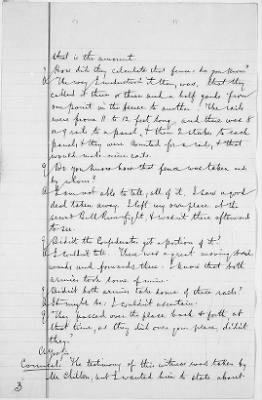 that is the amount.
Q How did they calculate that fence, do you know?
A The way I understood it they was, that they
called it three or three and a half yards from
one point in the fence to another. The rails
were from 11 to 12 feet long, and there was 8
rails to a panel, & then 2 stakes to each
panel, & they were counted for a rail, & that
would make nine rails.
Q Do you know how that fence was taken and
by whom?
A I am not able to tell, all of it, I saw a good
deal taken away. I left my own place at the
second Bull Run fight, & wasn't there afterward
to see.
Q Didn't the Confederates get a portion of it?
A I couldn't tell. There was a great moving back
wards and forwards there. I know that both
armies took some of mine.
Q Didn't both armies take some of these rails?
A It might be; I couldn't ascertain.
Q They passed over the place back & forth at
that time, as they did over your place, didn't
they?
A
Counsel: The testimony of this witness was taken by
Mr Chilton, but I wanted him to state about
3